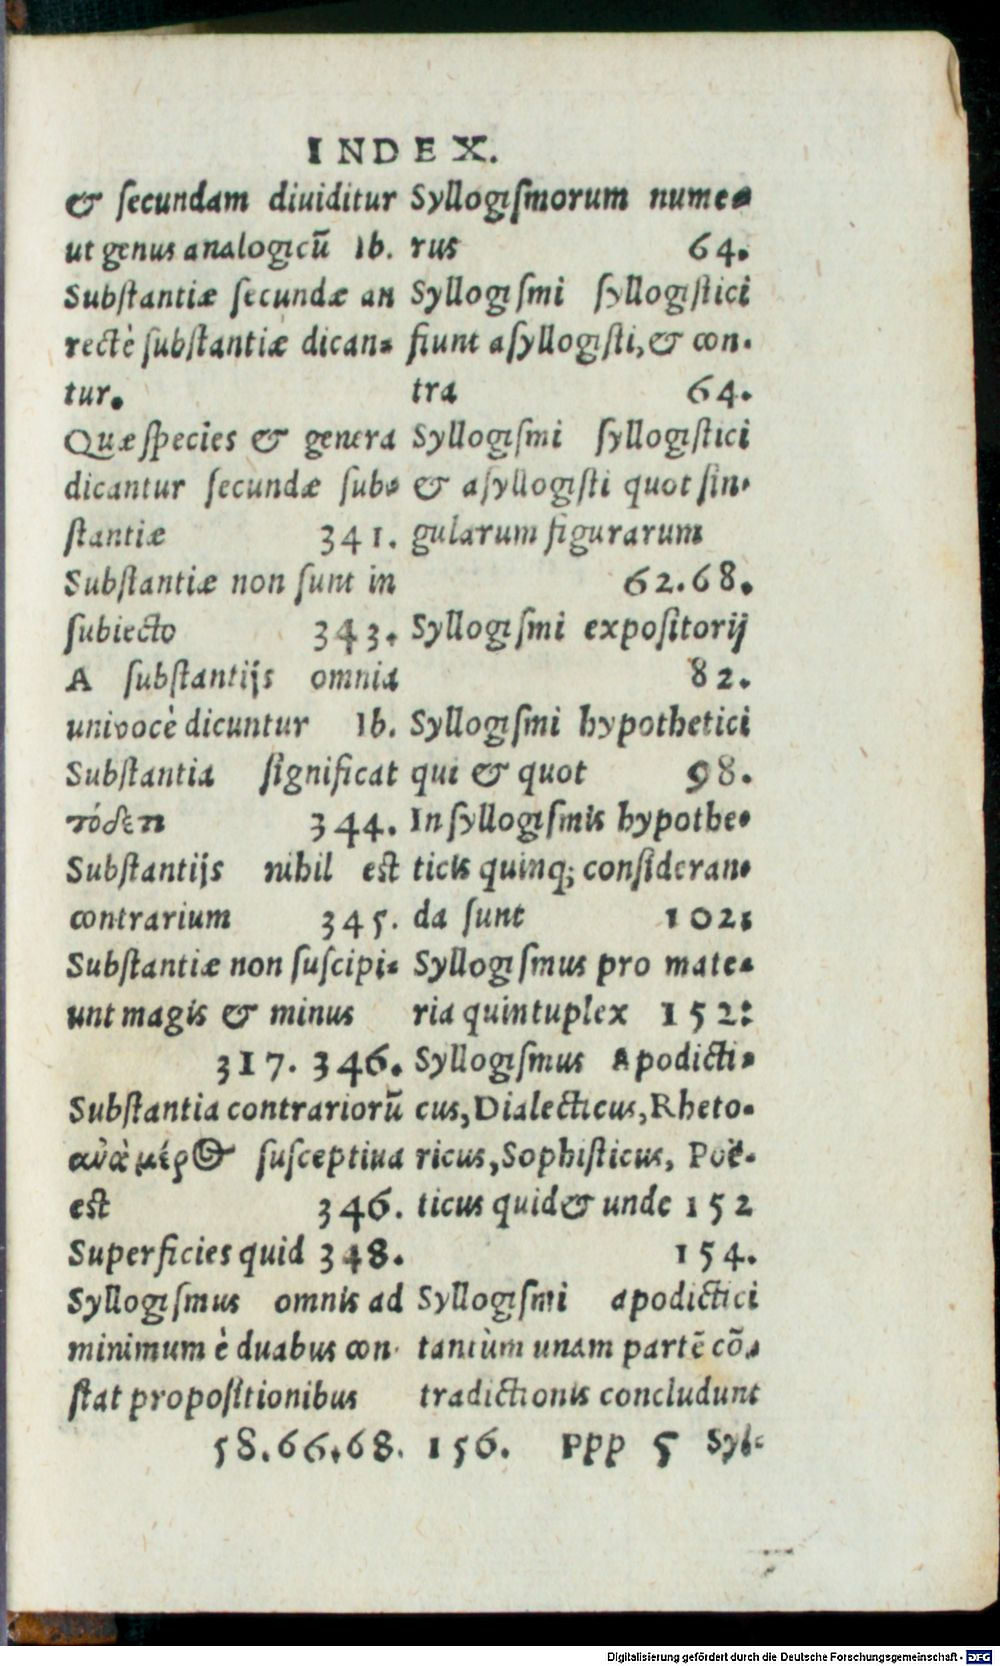 INDEX.
& secundam diuiditur
ut genus analogicū Ib.
Substantiæ secundæ an
rectè substantiæ dican-
tur.
Quæ species & genera
dicantur secundæ sub-
stantiæ 341.
Substantiæ non sunt in
subiecto 343.
A substantijs omnia
univocè dicuntur Ib.
Substantia significat
τόδε τι 344.
Substantijs nihil est
contrarium 345.
Substantiæ non suscipi-
unt magis & minus
317. 346.
Substantia contrariorū
ἀνὰ μέρος susceptiua
est 346.
Superficies quid 348.
Syllogismus omnis ad
minimum è duabus con-
stat propositionibus
58.66.68.
Syllogismorum nume-
rus 64.
Syllogismi syllogistici
fiunt asyllogisti, & con-
tra 64.
Syllogismi syllogistici
& asyllogisti quot sin-
gularum figurarum
62.68.
Syllogismi expositorij
82.
Syllogismi hypothetici
qui & quot 98.
In syllogismis hypothe-
ticis quinq; consideran-
da sunt 102;
Syllogismus pro mate-
ria quintuplex 152:
Syllogismus Apodicti-
cus, Dialecticus, Rheto-
ricus, Sophisticus, Poë-
ticus quid & unde 152
154.
Syllogismi apodictici
tantùm unam partē cō-
tradictionis concludunt
156. ppp 5 Syl-
Digitalisierung gefördert durch die Deutsche Forschungsgemeinschaft - DFG